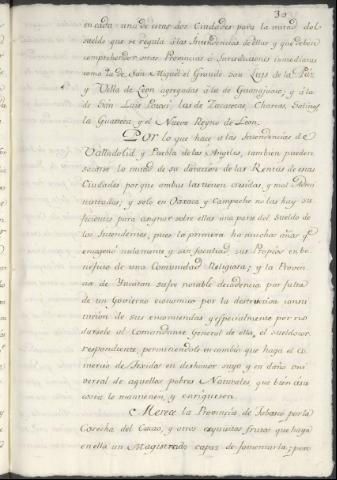 30
en cada una de estas dos Ciudades para la mitad del
sueldo que se regula á las Intendencias de ellas y que deben
comprehender otras Provincias ó Jurisdiciones inmediatas
como la de San Miguel el Grande San Luis de la Paz
y Villa de Leon agregadas á la de Guanajuato; y á la
de San Luis Potosi, las de Zacatecas, Charcas, Salinas
la Guasteca y el Nuevo Reyno de Leon.
Por lo que hace a las Intendencias de
Valladolid, y Puebla de los Angeles, tambien pueden
sacarse la mitad de su dotacion de las Rentas de estas
Ciudades por que ambas las tienen crecidas, y mal Admi
nistradas; y solo en Oaxaca y Campeche no las hay su
ficientes para asignar sobre ellas una parte del Sueldo de
los Intendentes, pues la primera ha muchos años que
enagenó nulamente y sin facultad sus Propios en be
neficio de una Comunidad Religiosa; y la Provin
cia de Yucatan sufre notable decadencia por falta
de un Govierno economico por la
de sus encomiendas y especialmente por no
darsele al Comandante General de ella, el sueldo cor
respondiente, permitiendole en cambio que haga el co
mercio de Texidos en deshonor suyo y en daño uni
versal de aquellos pobres Naturales, que bien á su
costa lo mantienen, y enriquecen.
Merece la Provincia de Tabasco por la
Cosecha del Cacao, y otros exquisitos frutos que haya
en ella un Magistrado capaz de fomentarla; pero